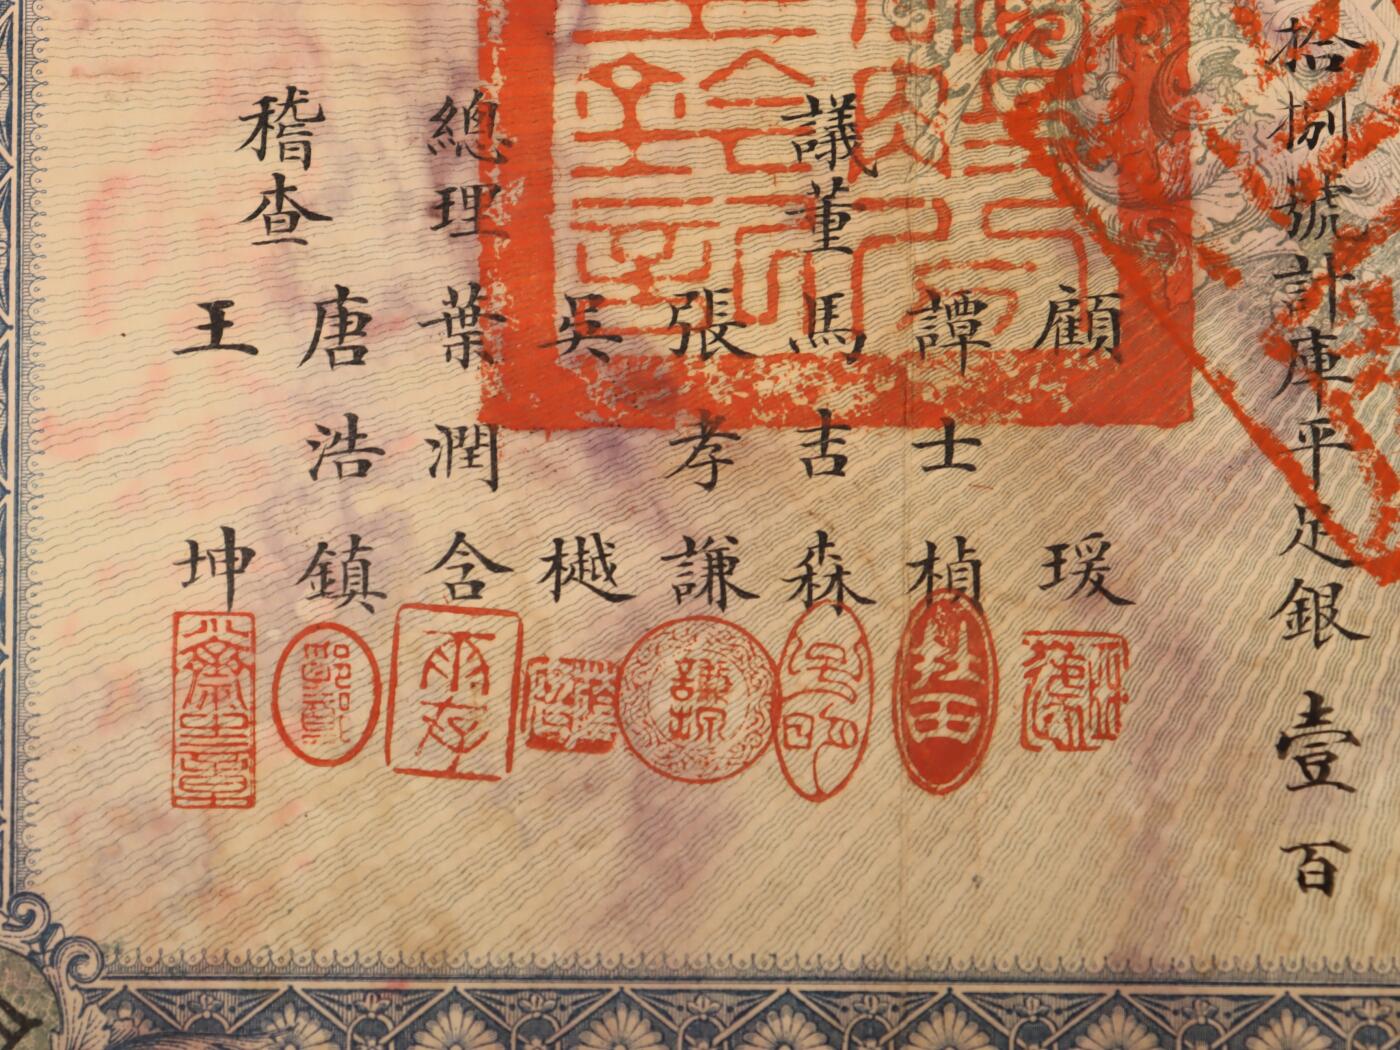 拾捌號計庫平足銀壹百
顧瑗
譚士楨
議董
馬吉森
張孝謙
吳樾
總理
葉潤含
唐浩鎮
稽查
王坤